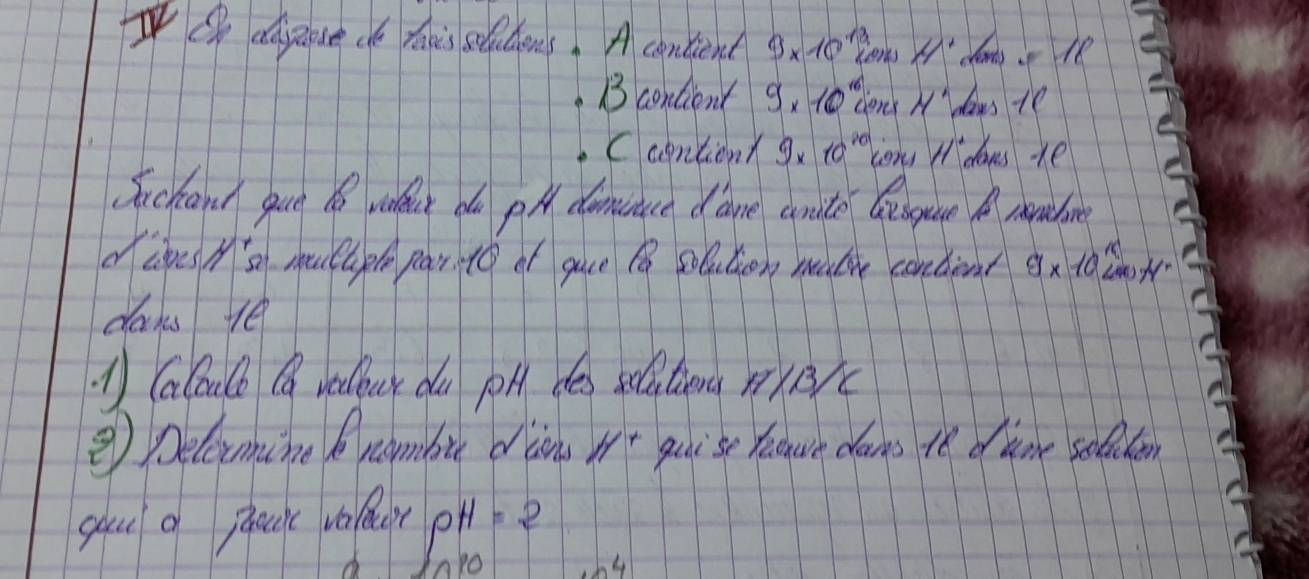 IV On dispose de trois solutions . A contient 9 x 10¹³ ions H⁺ dans 1l
. B contient 9 x 10¹⁶ ions H⁺ dans 1l
. C contient 9 x 10²⁰ ions H⁺ dans 1l
Sachant que la valeur du pH diminue d'une unité lorsque le nombre
d'ions H⁺ se multiplie par 10 et que la solution neutre contient 9 x 10 ions H⁺
dans 1l
1) Calcule la valeur du pH des solutions A/B/C
2) Détermine le nombre d'ions H⁺ qui se trouve dans 1l d'une solution
qui a pour valeur pH = 2